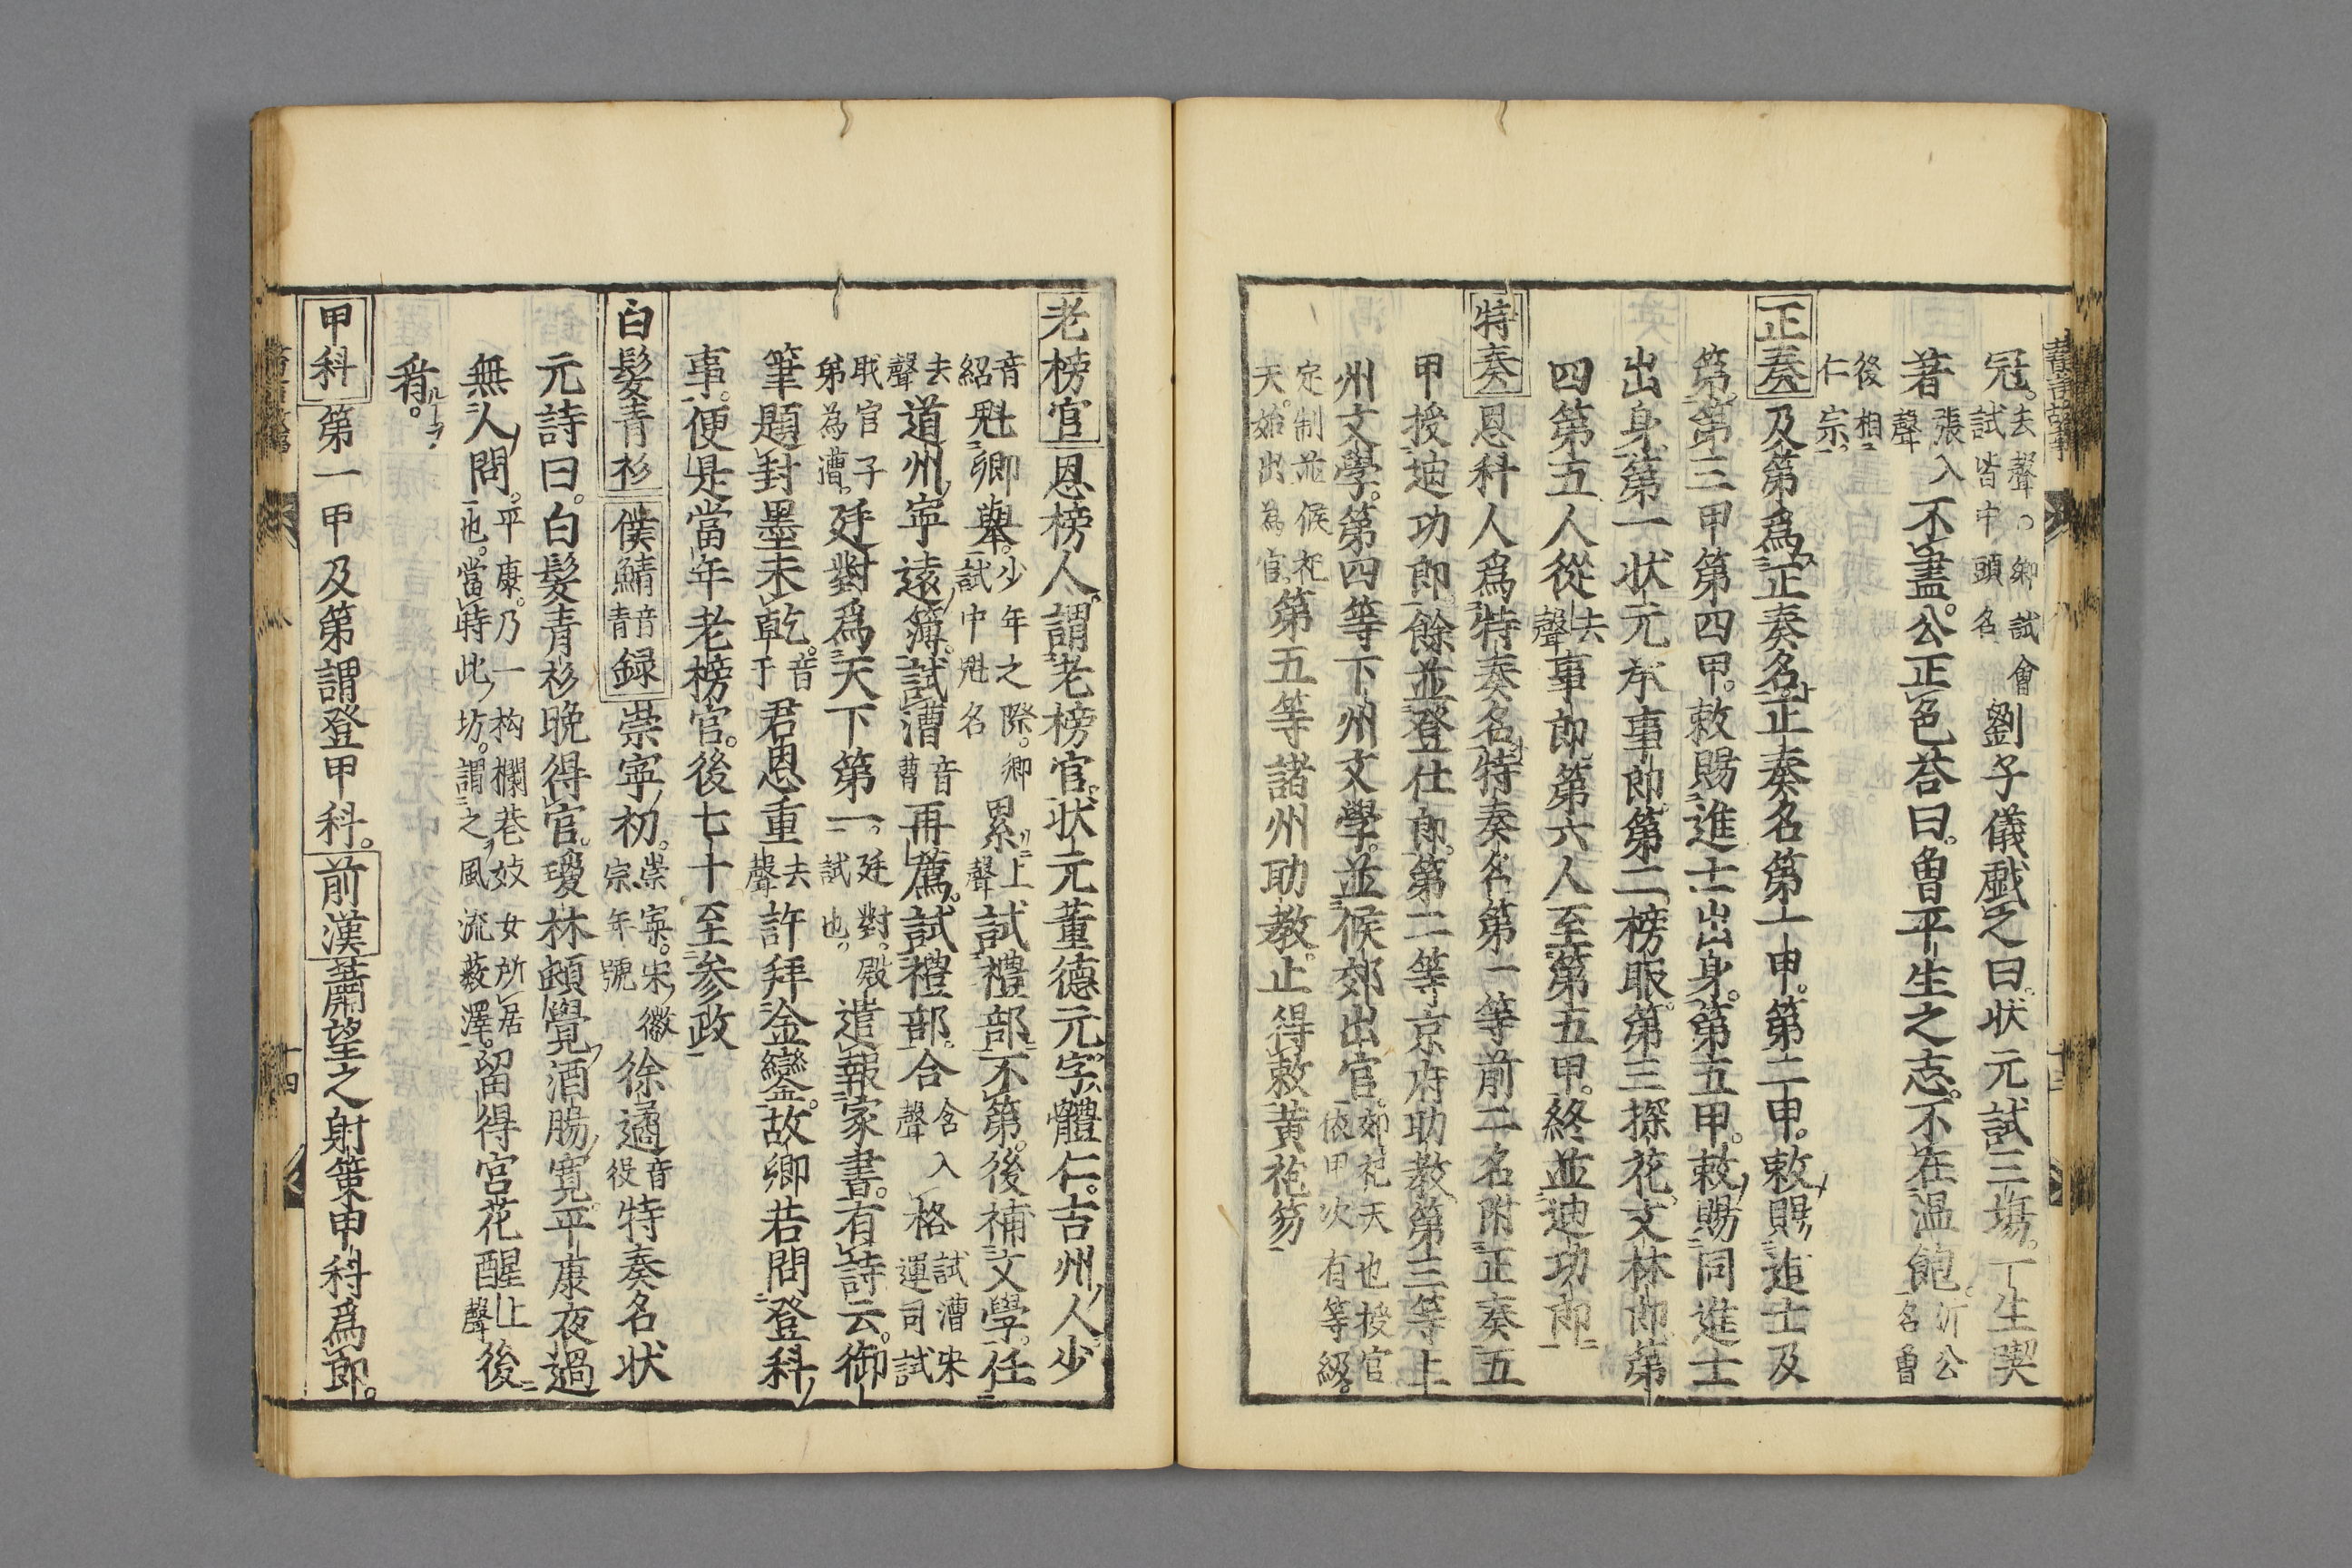 冠去聲。鄉試會試皆中頭名劉子儀戲之曰。状元試三場。一生喫
著張入聲不盡。公正色荅曰。曾平生之志。不在温飽。沂公名曾
後相仁宗。
正奏 及第爲正奏名。正奏名第一甲。第二甲。敕賜進士及
第。第三甲第四甲。敕賜進士出身。第五甲。敕賜同進士
出身。第一状元。承事郎。第二榜眼。第三探花。文林郎。第
四第五人從去聲事郎。第六人至第五甲。終並迪功郎
特奏 恩科人爲特奏名。特奏名第一等前二名附正奏五
甲。授迪功郎。餘並登仕郎。第二等京府助教。第三等上
州文學。第四等下州文學。並候郊出官。郊祀天也授官依甲次有等級。
定制並候祀天。始出為官。第五等諸州助教。止得敕黄袍笏
老榜官 恩榜人。謂老榜官。状元董德元。字體仁。吉州人。少
音紹魁鄉舉。少年之際。鄉試中魁名累上聲試禮部。不第。後補文學。任
去聲道州寧遠簿。試漕音曹再薦。試禮部。合含入聲格試漕宋運司試。
取官子弟為漕。廷對爲天下第一。廷對。殿試也。遣報家書。有詩云。御
筆題封墨未乾。音干君恩重去聲許拜金鑾。故鄉若問登科
事。便是當年老榜官。後七十至参政
白髮青衫 僕鯖音青録 崇寧初。崇寧。宋徽宗年號徐遹音役特奏名状
元詩曰。白髮青衫晩得官。瓊林頗覺酒腸寛。平康夜過
無人問。平康。乃一构欄巷妓女所居也。當時此坊。謂之風流藪澤。留得宮花醒上聲後
看。
甲科 第一甲及第謂登甲科。前漢 蕭望之射策甲科爲郎。